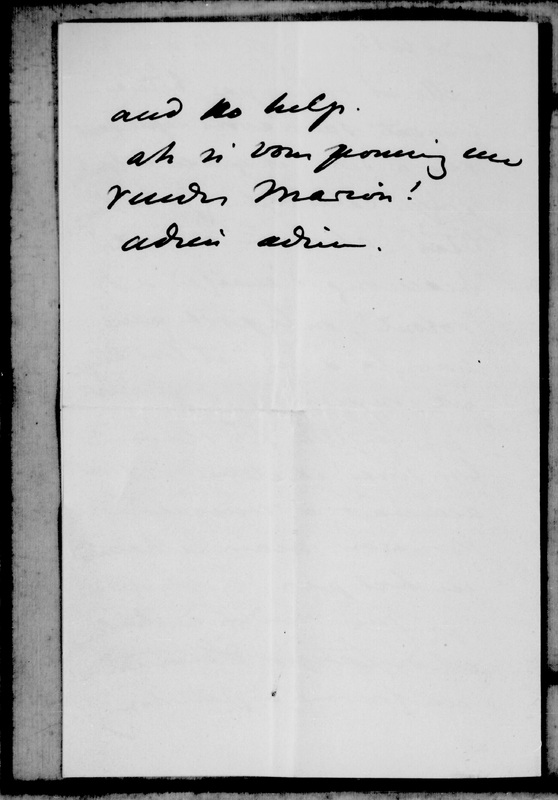 and no help.
ah si vous pouviez me
rendre Marion!
adieu adieu.